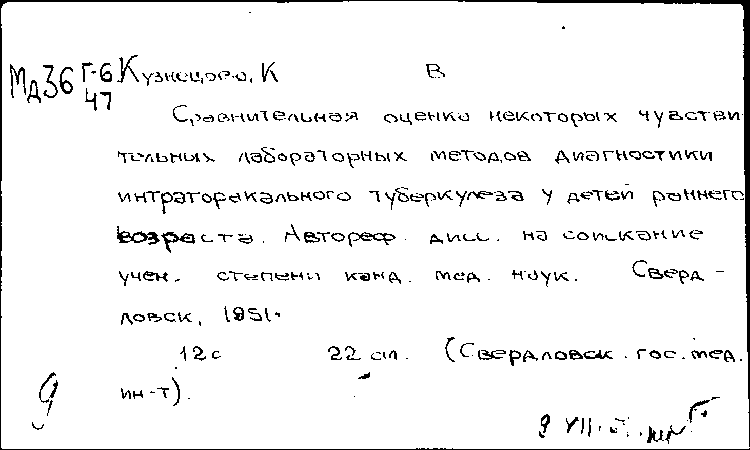 Мд36 Г-6 Кузнецова, К В
47
Сравнительная оценка некоторых чувстви
тельных лабораторных методов диагностики
интраторакального туберкулеза у детей раннего
возраста. Автореф. дисс. на соискание
учен. степени канд. мед. наук. Сверд-
ловск, 1951.
12с 22 см. (Свердловск. гос. мед.
ин-т).
9
9 VII